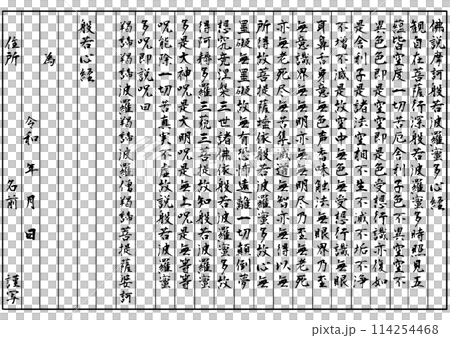 佛説摩訶般若波羅蜜多心経
観自在菩薩行深般若波羅蜜多時照見五
蘊皆空度一切苦厄舎利子色不異空空不
異色色即是空空即是色受想行識亦復如
是舎利子是諸法空相不生不滅不垢不浄
不増不減是故空中無色無受想行識無眼
耳鼻舌身意無色声香味触法無眼界乃至
無意識界無無明亦無無明尽乃至無老死
亦無老死尽無苦集滅道無智亦無得以無
所得故菩提薩埵依般若波羅蜜多故心無
罣礙無罣礙故無有恐怖遠離一切顛倒夢
想究竟涅槃三世諸佛依般若波羅蜜多故
得阿耨多羅三藐三菩提故知般若波羅蜜
多是大神呪是大明呪是無上呪是無等等
呪能除一切苦真実不虚故説般若波羅蜜
多呪即説呪曰
羯諦羯諦波羅羯諦波羅僧羯諦菩提薩婆訶
般若心経
為
令和 年 月 日
住所 名前 謹写
114254468